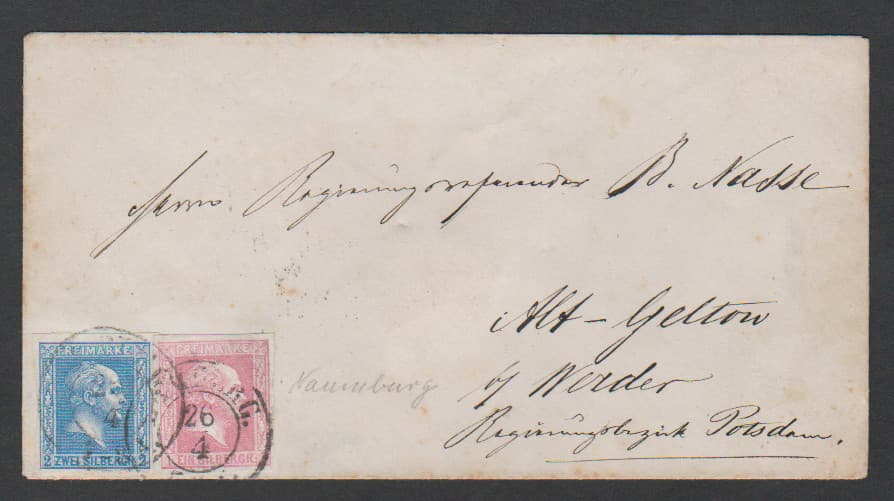 Herrn Regierungsreferendar B. Nasse
Alt-Geltow
b/ Werder
Regierungsbezirk Potsdam.
Naumburg
FREIMARKE FREIMARKE
26
4 4
2 ZWEI SILBERGR. 2 1 EIN SILBERGR.